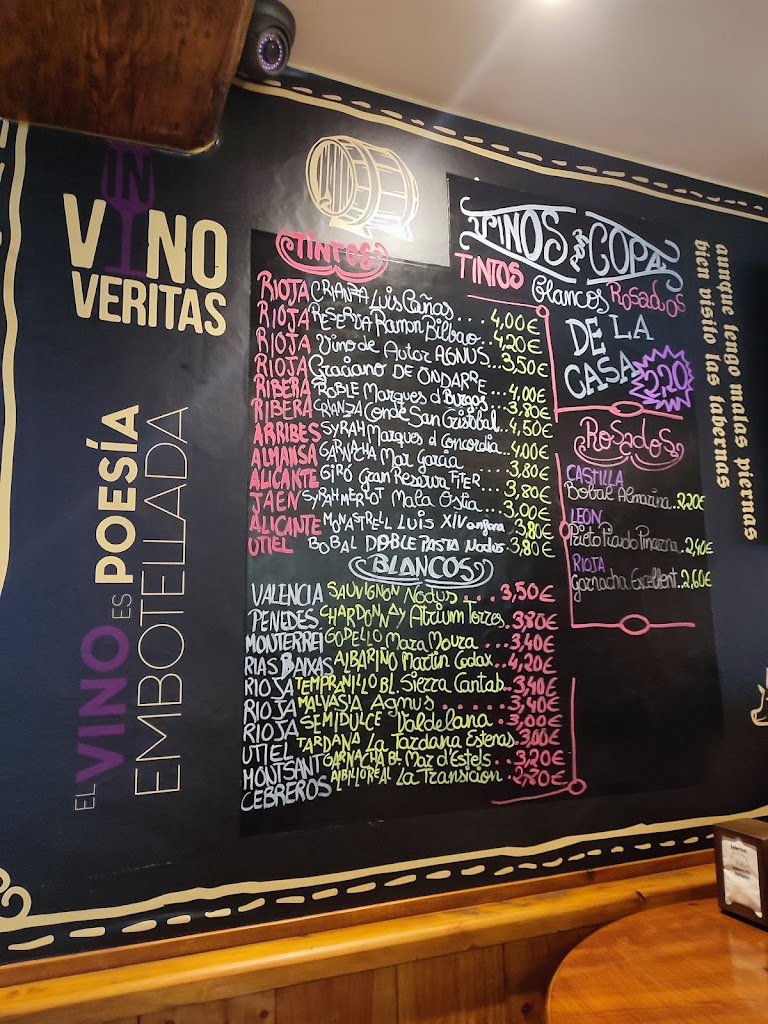 IN
VINO
VERITAS
EL VINO ES POESÍA
EMBOTELLADA
TINTOS
RIOJA CRIANZA LUIS Cañas .... 4,00€
RIOJA RESERVA Ramon Bilbao .. 4,20€
RIOJA Vino de Autor AGNUS . 3,50€
RIOJA Graciano DE ONDARRE .. 4,00€
RIBERA ROBLE Marques d Burgos 3,80€
RIBERA CRIANZA Conde San Cristobal. 4,50€
ARRIBES SYRAH Marques d Concordia.. 4,00€
ALMANSA GARNACHA Mar Garcia .... 3,80€
ALICANTE GIRÓ Gran Reserva FITER ... 3,80€
JAEN SYRAH MERLOT Mala Ostia .... 3,00€
ALICANTE MONASTRELL LUIS XIV anfora 3,80€
UTIEL BOBAL DOBLE PASTA Nodus. 3,80€
BLANCOS
VALENCIA SAUVIGNON Nodus .... 3,50€
PENEDES CHARDONNAY Atrium Torres. 3,80€
MONTERREI GODELLO Mara Moura .... 3,40€
RIAS BAIXAS ALBARIÑO Martin Codax .. 4,20€
RIOJA TEMPRANILLO BL. Sierra Cantab.. 3,40€
RIOJA MALVASIA Agnus ....... 3,40€
RIOJA SEMIDULCE Valdelana ... 3,00€
UTIEL TARDANA La Tardana Estenas. 3,00€
MONTSANT GARNACHA BL Mar d'Estels .. 3,20€
CEBREROS ALBILLO REAL La Transicion .. 2,30€
VINOS POR COPA
TINTOS Blancos Rosados
DE LA
CASA 2,20
Rosados
CASTILLA
Bobal Almazina.. 2,20€
LEON
Prieto Picudo .. 2,40€
RIOJA
Garnacha Excellent.. 2,60€
aunque tengo malas piernas
bien visito las tabernas